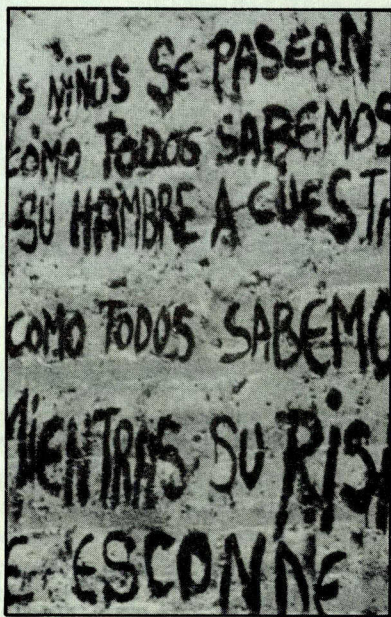 S NIÑOS SE PASEAN
COMO TODOS SABEMOS
SU HAMBRE A CUESTA
COMO TODOS SABEMO
MIENTRAS SU RISA
E ESCONDE